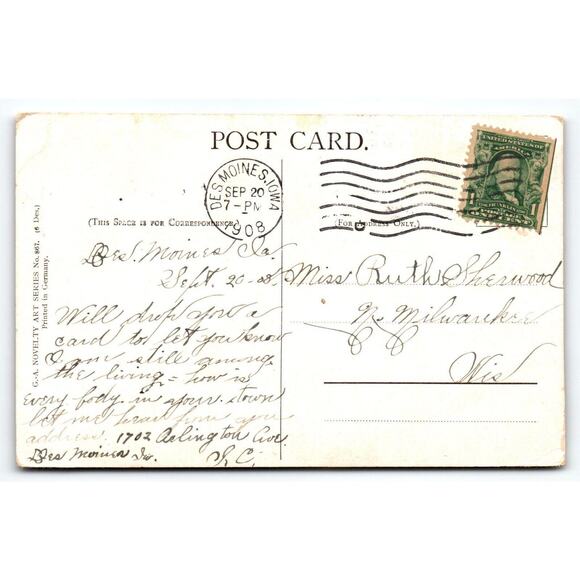 POST CARD.
DES MOINES, IOWA
SEP 20
7-PM
1908
UNITED STATES OF AMERICA
(THIS SPACE IS FOR CORRESPONDENCE)
(FOR ADDRESS ONLY.)
G.-A. NOVELTY ART SERIES No. 867. (6 Des.)
Printed in Germany.
Des. Moines Ia.
Sept. 20-08.
Will drop you a
card to let you know
I am still among
the living - how is
every body in your town
let me know you
address. 1702 Arlington Ave.
Des Moines Ia.
Miss Ruth Sherwood
N. Milwaukee
Wis